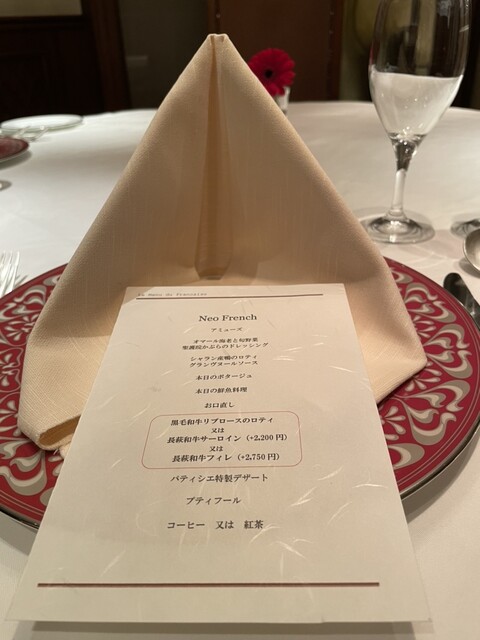 Neo French
アミューズ
オマール海老と旬野菜
聖護院かぶらのドレッシング
シャラン産鴨のロティ
グランヴヌールソース
本日のポタージュ
本日の鮮魚料理
お口直し
黒毛和牛リブロースのロティ
又は
長萩和牛サーロイン（+2,200 円）
又は
長萩和牛フィレ（+2,750 円）
パティシエ特製デザート
プティフール
コーヒー 又は 紅茶